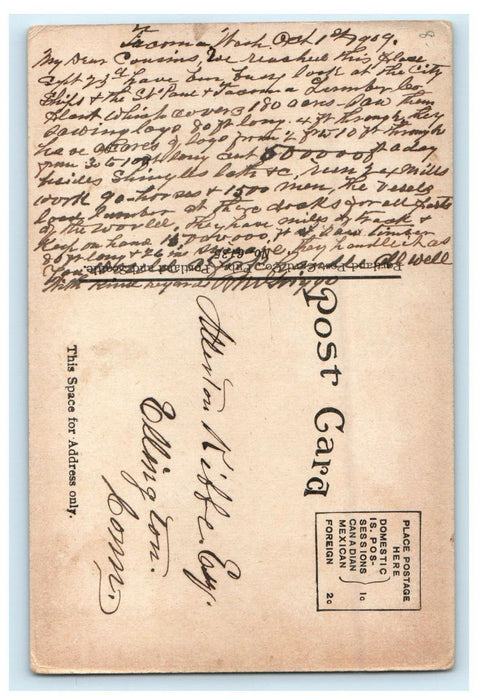 Tacoma Wash Oct 1st 1909.
My Dear Cousins, We reached this place
Sept 23d have been busy look at the City
Ships & the St Paul & Tacoma Lumber Co
Plant which covers 180 acres. Saw them
sawing logs 80 ft long. 4 ft through, they
have acres of logs from 2 ft to 10 ft through
from 30 to 100 ft long cut 500000 ft a day
besides Shingles lath &c, run 3 Mills
work 90 horses & 1500 men, the vessels
load lumber at the docks for all parts
of the world, they have miles of track &
keep on hand ft Saw timber
80 ft long & 26 in square they handle it as
you All well
with kind regards
Portland Post Card Co., Pubs., Portland and Seattle.
No.
Post Card
PLACE POSTAGE
HERE
DOMESTIC
IS. POS-
SESSIONS
CANADIAN
MEXICAN
1c
FOREIGN 2c
Atterton Kibbe. Esq.
Ellington.
Conn.
This Space for Address only.
8